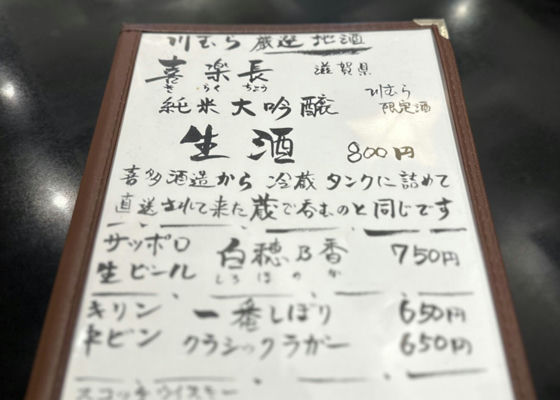 川むら 厳選 地酒
喜楽長 滋賀県
きらくちょう 川むら
純米大吟醸 限定酒
生酒 800円
喜多酒造から 冷蔵タンクに詰めて
直送されて来た蔵で呑むのと同じです
サッポロ 白穂乃香 750円
生ビール しろほのか
キリン 一番しぼり 650円
中ビン クラシックラガー 650円
スコッチウイスキー